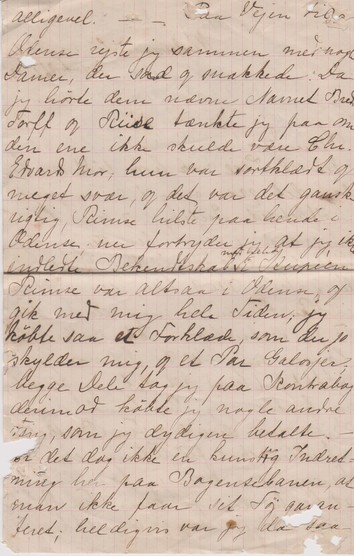 alligevel. — — Paa Vejen til
Odense rejste jeg sammen med nogle
Damer, der sad og snakkede. Da
jeg hørte dem nævne Navnet Bred
storff og Riise tænkte jeg paa om
den ene ikke skulde være Chr.
Edvards Mor, hun var sortklædt og
meget svær, og det var det ganske
rigtig, Rimse hilste paa hende i
Odense nu fortryder jeg, at jeg ik
indledte Bekendtskab i Kupeen
Rimse var altsaa i Odense, og
gik med mig hele Tiden; jeg
købte saa et Forklæde, som du jo
skylder mig, og et Par Galosjer,
begge Dele tog jeg paa Kontrabog
derimod købte jeg nogle andre
Ting, som jeg dydigen betalte. —
er det dog ikke en Indret-
ning paa Bogensebanen, at
man ikke faar sit Tøj garan-
teret; heldigvis var jeg da saa